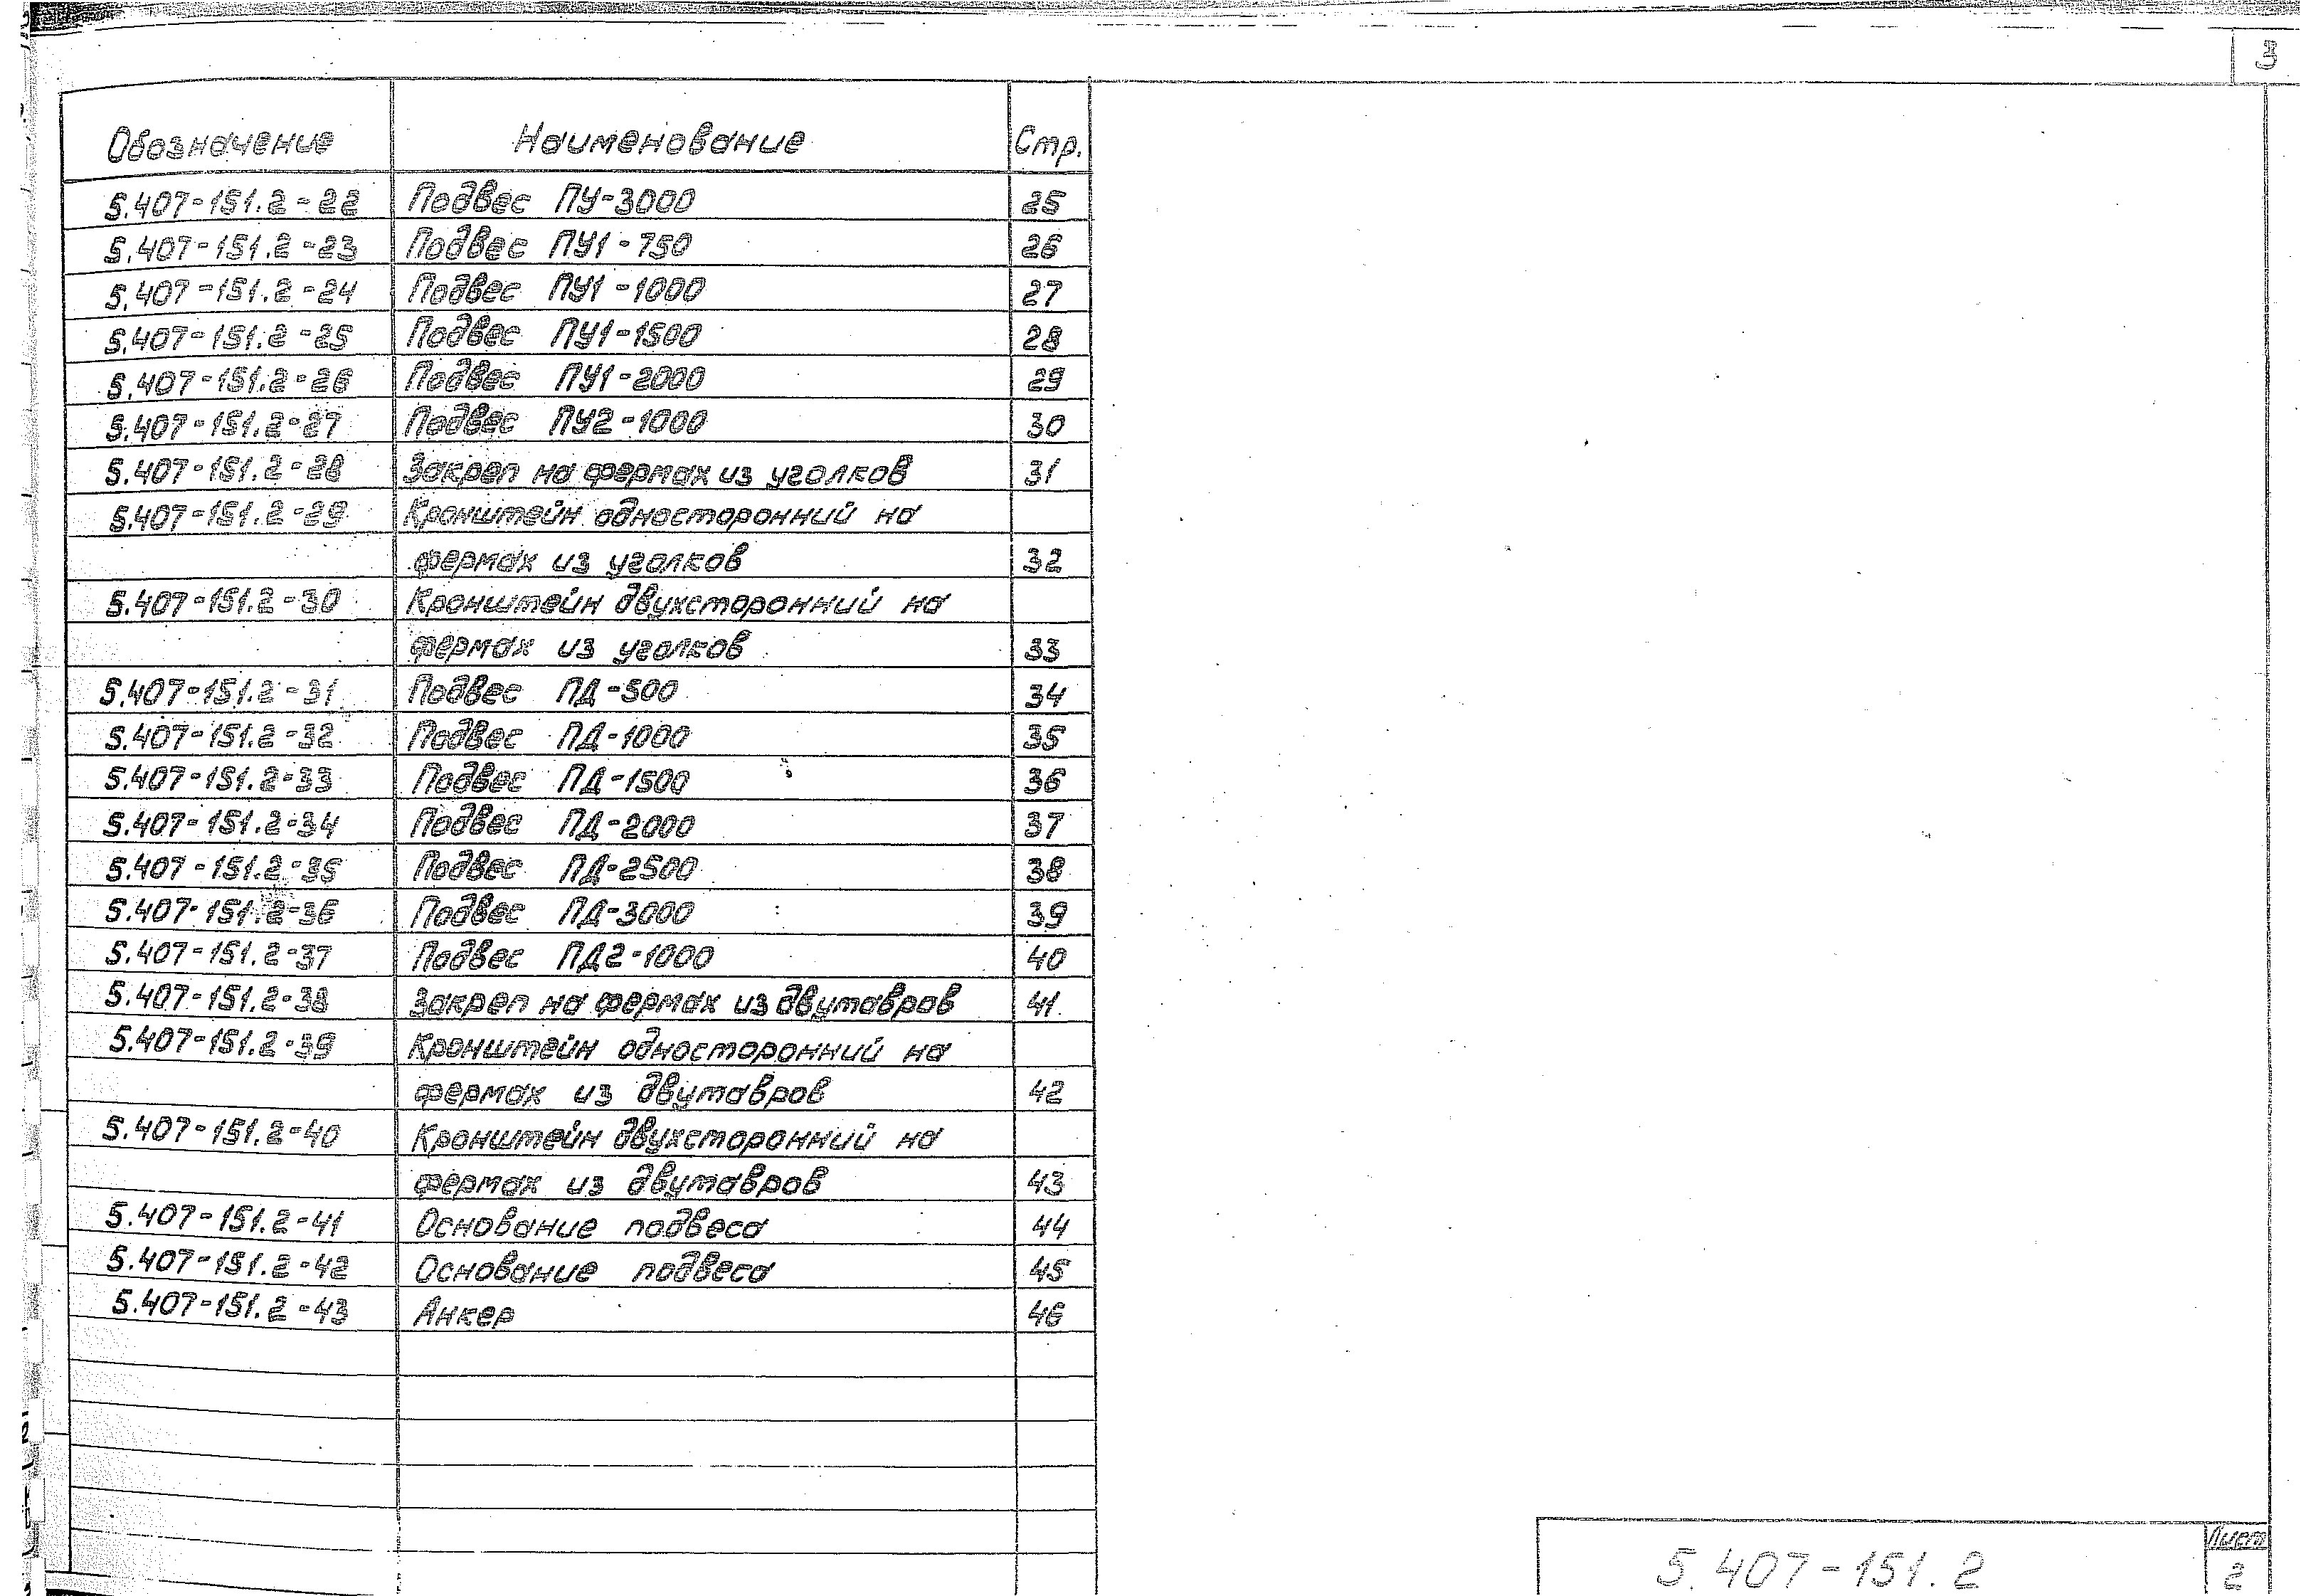 3
Обозначение Наименование Стр.
5.407-151.2-22 Подвес ПУ-3000 25
5.407-151.2-23 Подвес ПУ1-750 26
5.407-151.2-24 Подвес ПУ1-1000 27
5.407-151.2-25 Подвес ПУ1-1500 28
5.407-151.2-26 Подвес ПУ1-2000 29
5.407-151.2-27 Подвес ПУ2-1000 30
5.407-151.2-28 Закреп на фермах из уголков 31
5.407-151.2-29 Кронштейн односторонний на
фермах из уголков 32
5.407-151.2-30 Кронштейн двухсторонний на
фермах из уголков 33
5.407-151.2-31 Подвес ПД-500 34
5.407-151.2-32 Подвес ПД-1000 35
5.407-151.2-33 Подвес ПД-1500 36
5.407-151.2-34 Подвес ПД-2000 37
5.407-151.2-35 Подвес ПД-2500 38
5.407-151.2-36 Подвес ПД-3000 39
5.407-151.2-37 Подвес ПД2-1000 40
5.407-151.2-38 Закреп на фермах из двутавров 41
5.407-151.2-39 Кронштейн односторонний на
фермах из двутавров 42
5.407-151.2-40 Кронштейн двухсторонний на
фермах из двутавров 43
5.407-151.2-41 Основание подвеса 44
5.407-151.2-42 Основание подвеса 45
5.407-151.2-43 Анкер 46
5.407-151.2
Лист
2